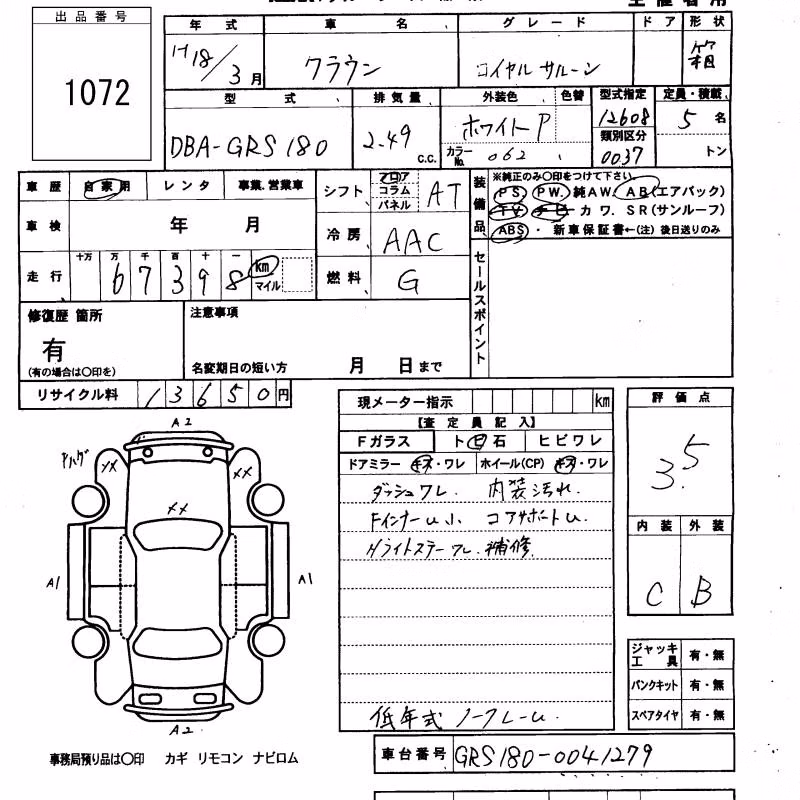 出品番号
1072
年式 車名 グレード ドア 形状
H18/3月 クラウン ロイヤル サルーン 箱
型式 排気量 外装色 色替 型式指定 定員・積載
DBA-GRS180 2.49 C.C. ホワイトP 12608 5名
カラーNo. 062 類別区分 0037 トン
車歴 自家用 レンタ 事業.営業車
シフト フロア コラム パネル AT
車検 年 月
冷房 AAC
走行 十万 万 千 百 十 一
67398 km マイル
燃料 G
装備品 ※純正のみ〇印をつけて下さい
PS PW. 純AW. AB(エアバック)
TV ナビ カワ. SR(サンルーフ)
ABS・ 新車保証書←(注)後日送りのみ
セールスポイント
修復歴 箇所 注意事項
有
(有の場合は〇印を) 名変期日の短い方 月 日まで
リサイクル料 13650円
現メーター指示 km
【査定員記入】
Fガラス ト ヒ 石 ヒビワレ
ドアミラー キズ・ワレ ホイール(CP) キズ・ワレ
ダッシュワレ. 内装汚れ.
FインナーU小 コアサポートU.
Hライトステーワレ.補修.
低年式 ノークレーム.
評価点
3.5
内装 外装
C B
A2
XX XX
XX
A1 A1
A2
ジャッキ工具 有・無
パンクキット 有・無
スペアタイヤ 有・無
事務局預り品は〇印 カギ リモコン ナビロム
車台番号 GRS180-0041279